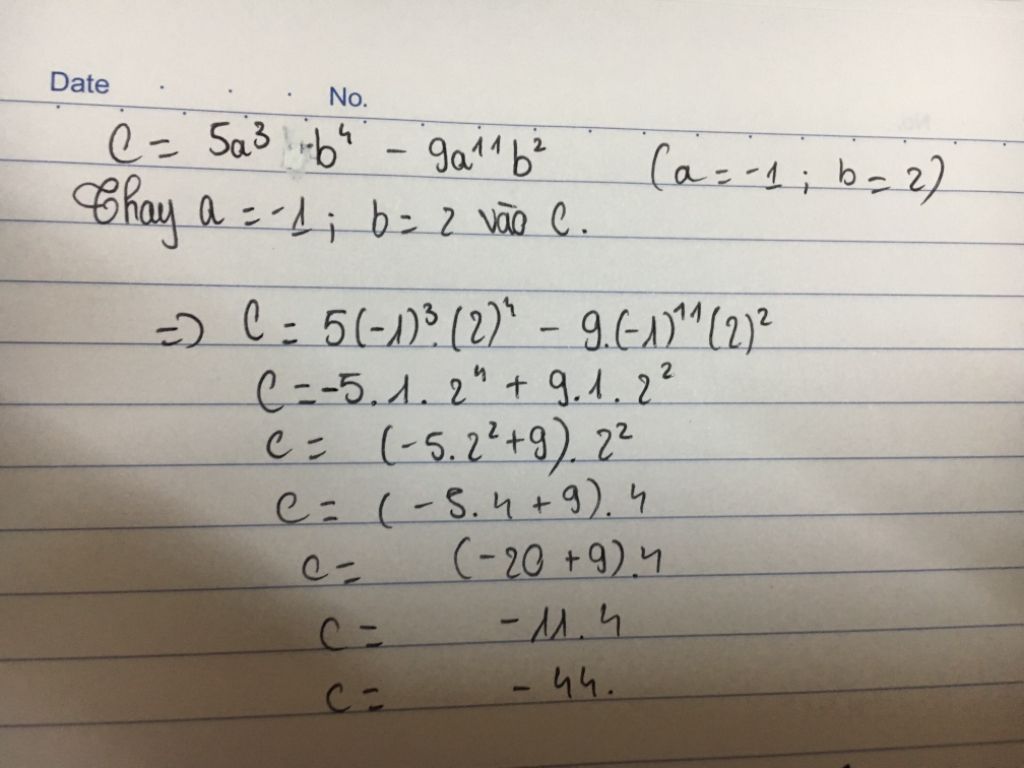 Date No.
C = 5a³ b⁴ - 9a¹¹b² (a = -1 ; b = 2)
Thay a = -1 ; b = 2 vão C.
=> C = 5(-1)³.(2)⁴ - 9.(-1)¹¹(2)²
C = -5.1.2⁴ + 9.1.2²
C = (-5.2²+9).2²
C = (-5.4+9).4
C = (-20+9).4
C = -11.4
C = -44.